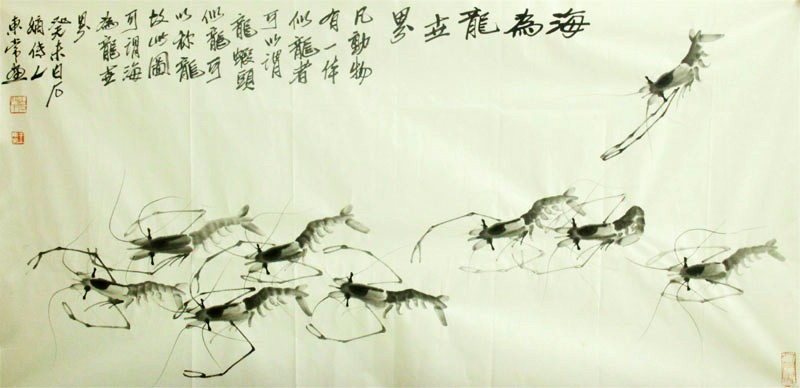 海為龍世界
凡動物
有一体
似龍者
可以謂
龍蝦頭
似龍可
以称龍
故此圖
可謂海
為龍世
界
癸未白石
嫡传人